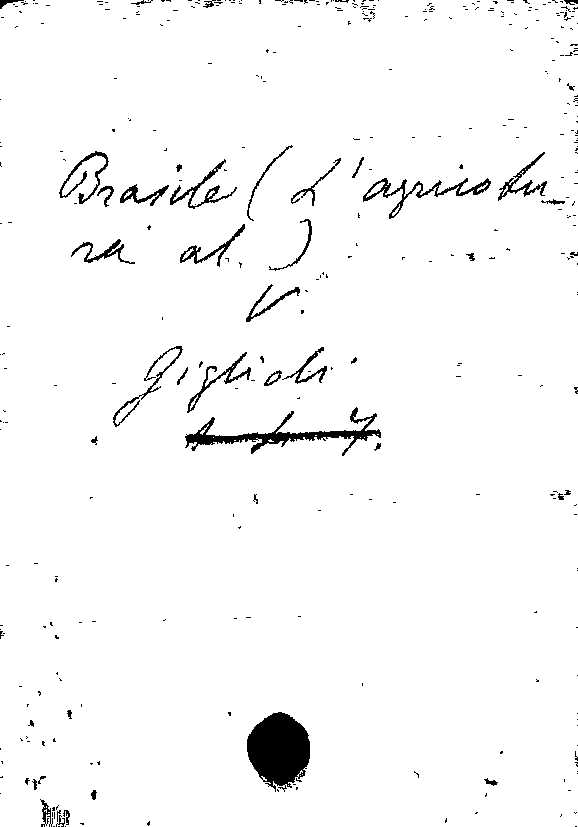 Brasile (L'agricotu_
ra al.)
V.
Giglioli.